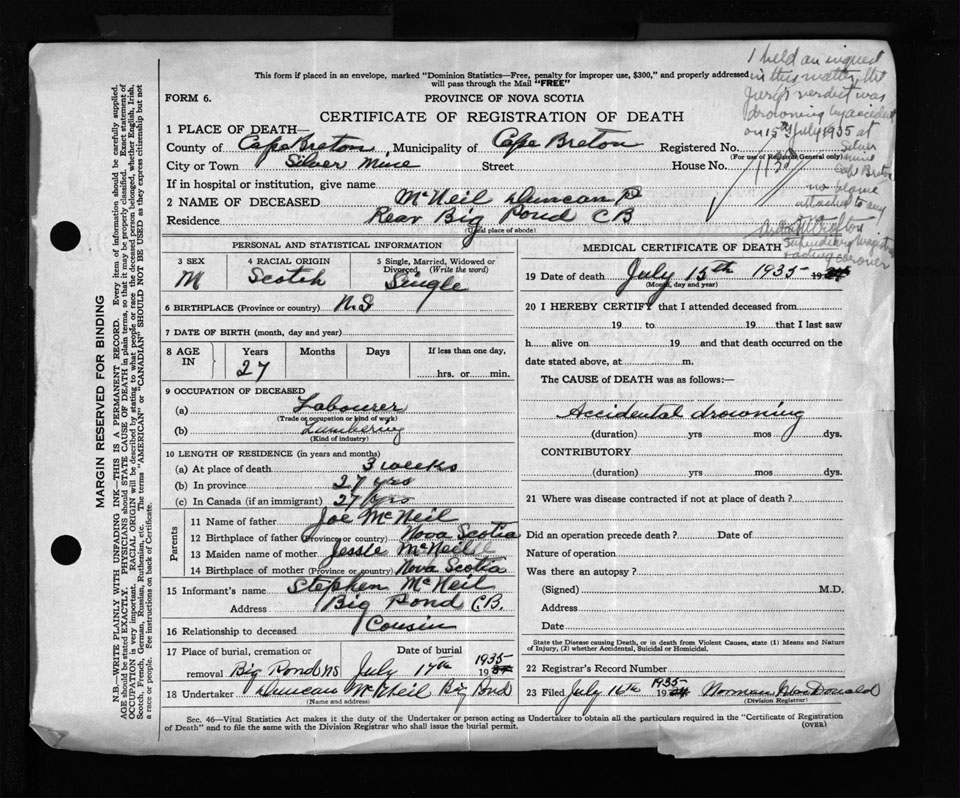 This form if placed in an envelope, marked "Dominion Statistics—Free, penalty for improper use, $300," and properly addressed
will pass through the Mail "FREE"
FORM 6.
PROVINCE OF NOVA SCOTIA
CERTIFICATE OF REGISTRATION OF DEATH
I held an inquest
in this matter, the
Jury's verdict was
drowning by accident
on 15th July 1935 at
Silver
Mine
Cape Breton
no blame
attached to any
one
Stipendiary Magistrate
& acting coroner
1 PLACE OF DEATH—
County of Cape Breton Municipality of Cape Breton Registered No.
(For use of Registrar General only)
City or Town Silver Mine Street House No.
1138
If in hospital or institution, give name
2 NAME OF DECEASED McNeil Duncan P
Residence Rear Big Pond C B
(Usual place of abode)
PERSONAL AND STATISTICAL INFORMATION
3 SEX M
4 RACIAL ORIGIN Scotch
5 Single, Married, Widowed or Divorced (Write the word) Single
6 BIRTHPLACE (Province or country) N.S
7 DATE OF BIRTH (month, day and year)
8 AGE IN Years Months Days If less than one day,
27 hrs. or min.
9 OCCUPATION OF DECEASED
(a) Labourer
(Trade or occupation or kind of work)
(b) Lumbering
(Kind of industry)
10 LENGTH OF RESIDENCE (in years and months)
(a) At place of death 3 weeks
(b) In province 27 yrs
(c) In Canada (if an immigrant) 27 yrs
Parents
11 Name of father Joe McNeil
12 Birthplace of father (Province or country) Nova Scotia
13 Maiden name of mother Jessie McNeil
14 Birthplace of mother (Province or country) Nova Scotia
15 Informant's name Stephen McNeil
Address Big Pond C.B.
16 Relationship to deceased Cousin
17 Place of burial, cremation or Date of burial
removal Big Pond NS July 17th 1935 19
18 Undertaker Duncan McNeil Big Pond
(Name and address)
MEDICAL CERTIFICATE OF DEATH
19 Date of death July 15th 1935 19
(Month, day and year)
20 I HEREBY CERTIFY that I attended deceased from
19 to 19 that I last saw
h alive on 19 and that death occurred on the
date stated above, at m.
The CAUSE of DEATH was as follows:—
Accidental drowning
(duration) yrs mos dys.
CONTRIBUTORY
(duration) yrs mos dys.
21 Where was disease contracted if not at place of death?
Did an operation precede death? Date of
Nature of operation
Was there an autopsy?
(Signed) M.D.
Address
Date
State the Disease causing Death, or in death from Violent Causes, state (1) Means and Nature
of Injury, (2) whether Accidental, Suicidal or Homicidal.
22 Registrar's Record Number
23 Filed July 16th 1935 19 Norman MacDonald
(Division Registrar)
Sec. 46—Vital Statistics Act makes it the duty of the Undertaker or person acting as Undertaker to obtain all the particulars required in the "Certificate of Registration
of Death" and to file the same with the Division Registrar who shall issue the burial permit.
(OVER)
MARGIN RESERVED FOR BINDING
N.B.—WRITE PLAINLY WITH UNFADING INK—THIS IS A PERMANENT RECORD. Every item of information should be carefully supplied.
AGE should be stated EXACTLY. PHYSICIANS should STATE CAUSE OF DEATH in plain terms, so that it may be properly classified. Exact statement of
OCCUPATION is very important. RACIAL ORIGIN will be described by stating to what people or race the deceased person belonged, whether English, Irish,
Scotch, French, German, Russian, Ruthenian, etc. The terms "AMERICAN" or "CANADIAN" SHOULD NOT BE USED as they express citizenship but not
a race or people. See instructions on back of Certificate.